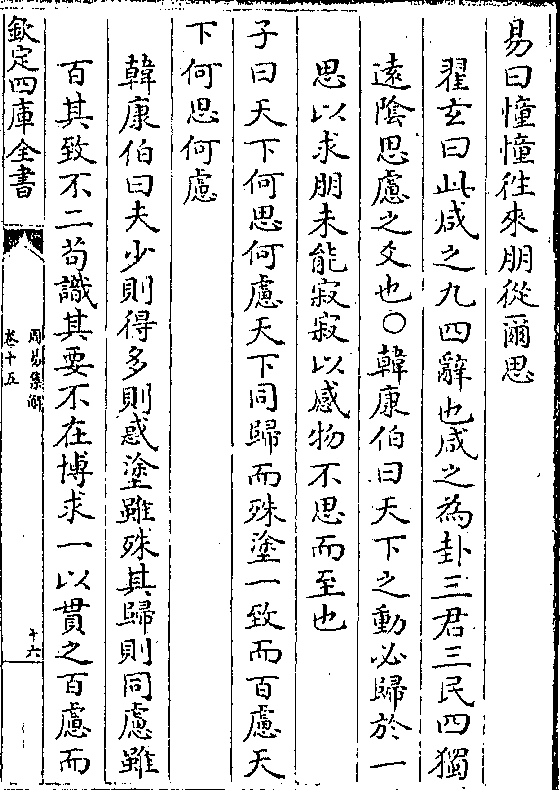 易曰憧憧往來朋從爾思
翟玄曰此咸之九四辭也咸之為卦三君三民四獨
遠陰思慮之爻也○韓康伯曰天下之動必歸於一
思以求朋未能寂寂以感物不思而至也
子曰天下何思何慮天下同歸而殊塗一致而百慮天
下何思何慮
韓康伯曰夫少則得多則惑塗雖殊其歸則同慮雖
百其致不二苟識其要不在博求一以貫之百慮而
欽定四庫全書
周易集解
卷十五
十六